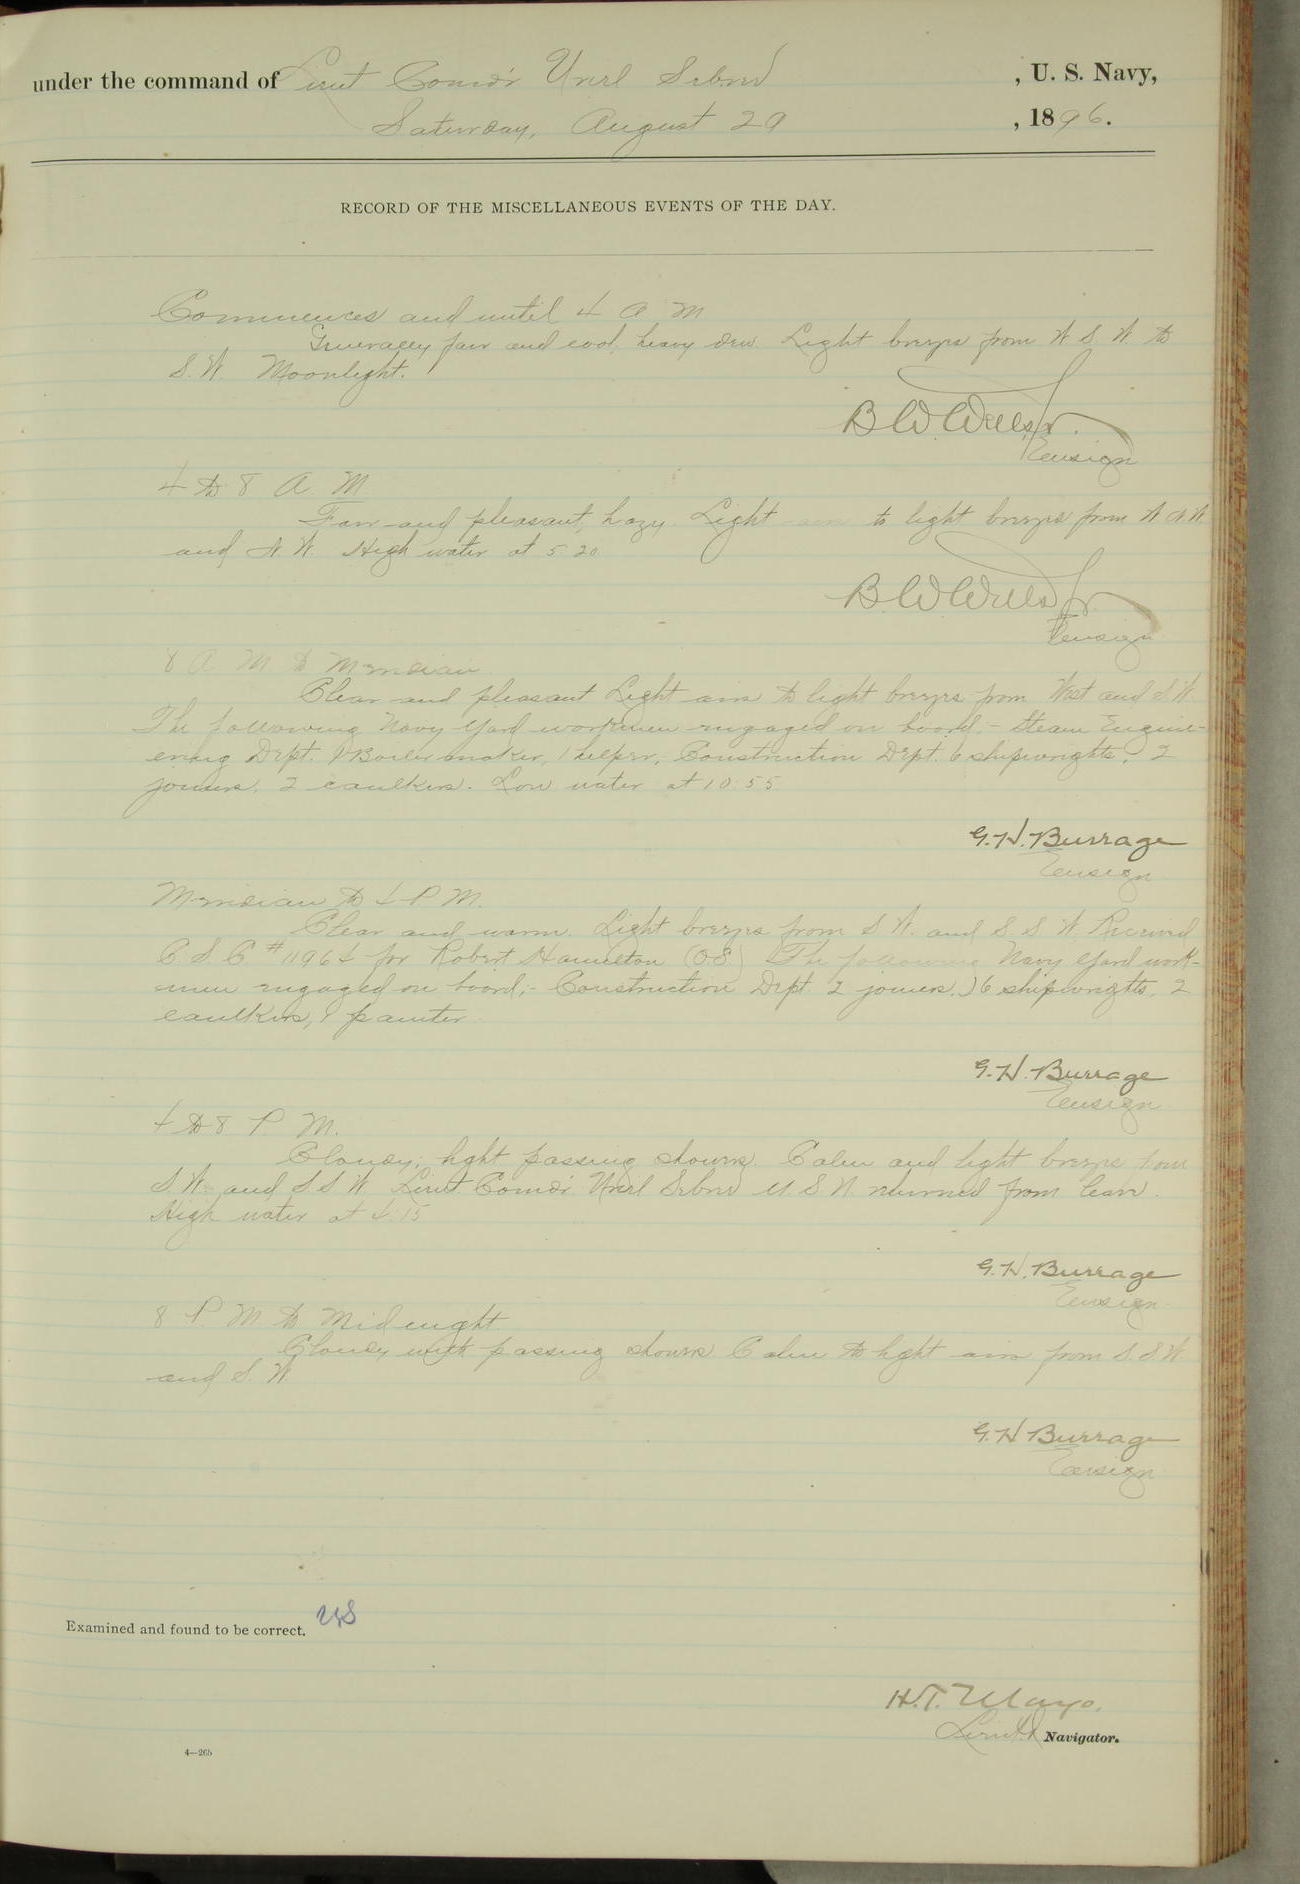 under the command of Lieut Comd'r Uriel Sebree , U. S. Navy,
Saturday, August 29 , 1896.
RECORD OF THE MISCELLANEOUS EVENTS OF THE DAY.
Commences and until 4 A M
Generally fair and cool, heavy dew. Light breezes from W S W to
S. W Moonlight.
B W Wells Jr.
Ensign
4 to 8 A. M
Fair and pleasant, hazy. Light airs to light breezes from W N W
and N W. High water at 5 20
B W Wells Jr
Ensign
8 A M to Meridian
Clear and pleasant Light airs to light breezes from West and S W.
The following Navy Yard workmen engaged on board,- Steam Engine-
ering Dept. 1 Boilermaker, 1 helper, Construction Dept. 6 shipwrights, 2
joiners, 2 caulkers. Low water at 10 55
G. H. Burrage
Ensign
Meridian to 4 P M.
Clear and warm. Light breezes from S W. and S. S W Received
C S C # 11964 for Robert Hamilton (OS) The following Navy Yard work-
men engaged on board,- Construction Dept 2 joiners, 6 shipwrights, 2
caulkers, 1 painter
G. H. Burrage
Ensign
4 to 8 P. M.
Cloudy, light passing showers. Calm and light breezes from
S W. and S S W. Lieut Comd'r Uriel Sebree U S N returned from leave.
High water at 4.15
G. H. Burrage
Ensign
8 P. M to Midnight
Cloudy with passing showers Calm to light airs from S. S W
and S. W.
G. H Burrage
Ensign
Examined and found to be correct. US
H. T. Mayo.
Lieut & Navigator.
4—265